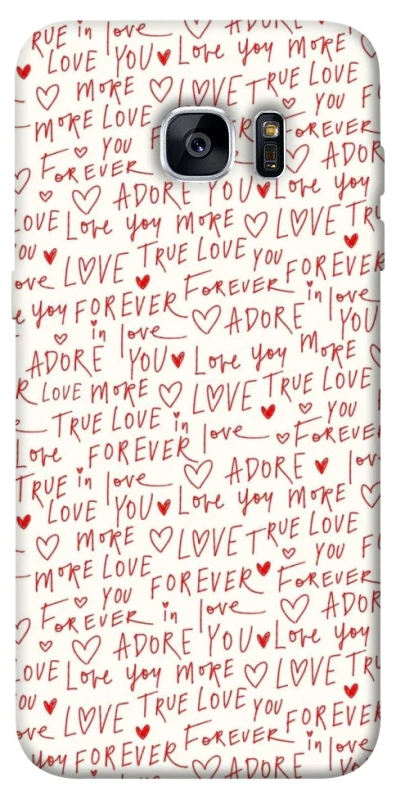 TRUE in love ADORE
LOVE YOU Love you MORE
MORE LOVE TRUE LOVE
MORE LOVE YOU
YOU FOREVER
FOREVER ADOR
ADORE YOU Love you
LOVE Love you MORE LOVE TRU
YOU TRUE LOVE YOU FOREVER
ove LOVE FOREVER in love
you FOREVER ADORE YOU
in love
ADORE YOU Love you MORE
LOVE MORE LOVE TRUE LOVE
TRUE LOVE in love YOU
Love FOREVER FOREVE
TRUE in love ADORE lov
LOVE YOU Love you MORE
MORE LOVE TRUE LOVE
MORE LOVE YOU F
YOU FOREVER FOREVER
FOREVER in love ADOR
ADORE YOU Love you
LOVE Love you MORE LOVE TRU
YOU TRUE LOVE YOU FOREVER
ove LOVE FOREVER in love
you FOREVER YOU
in love ADORE